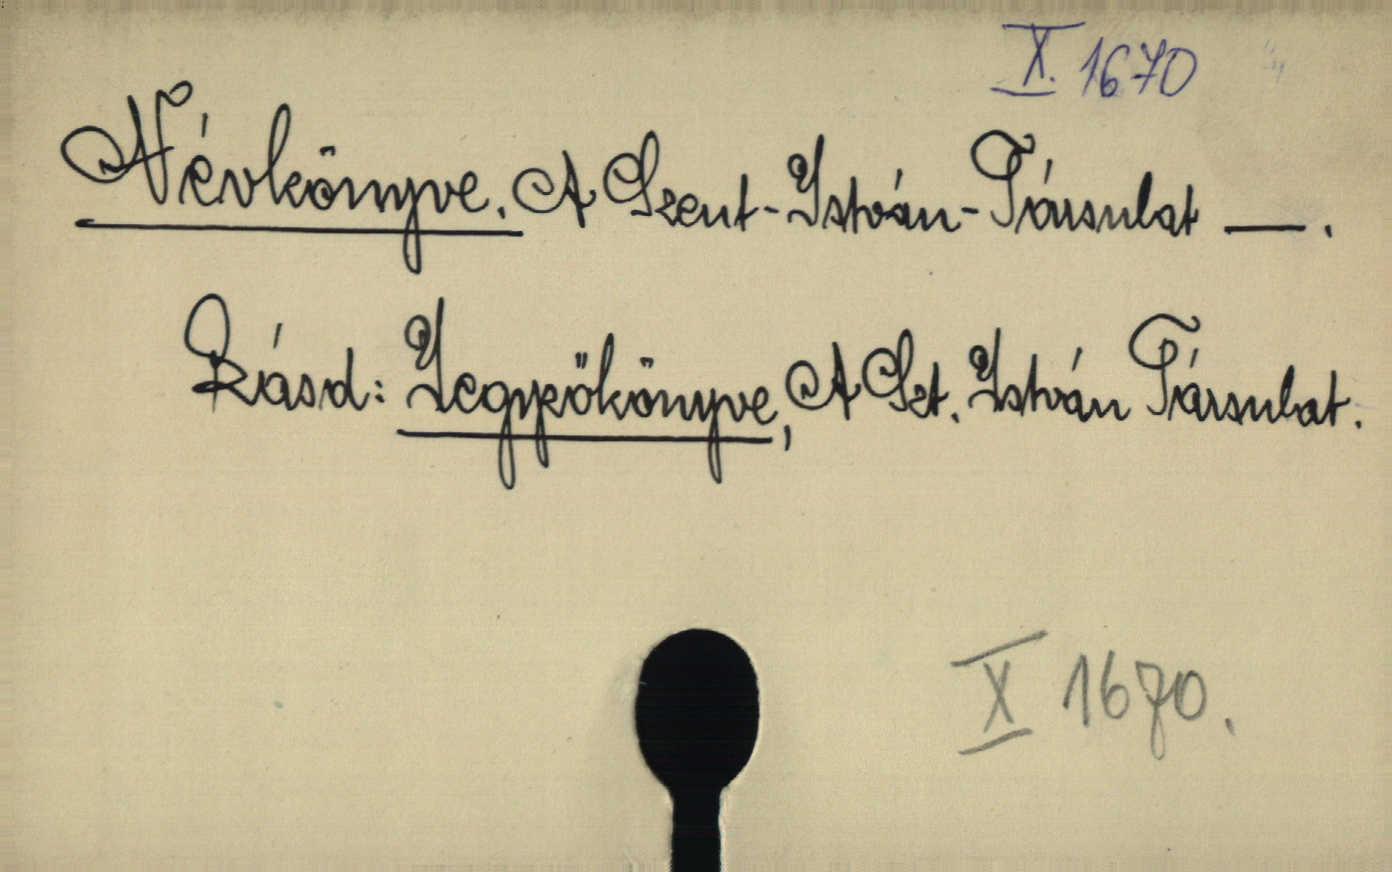 X. 1670
Névkönyve. A Szent-István-Társulat —.
Lásd: Jegyzőkönyve, A Szt. István Társulat.
X 1670.